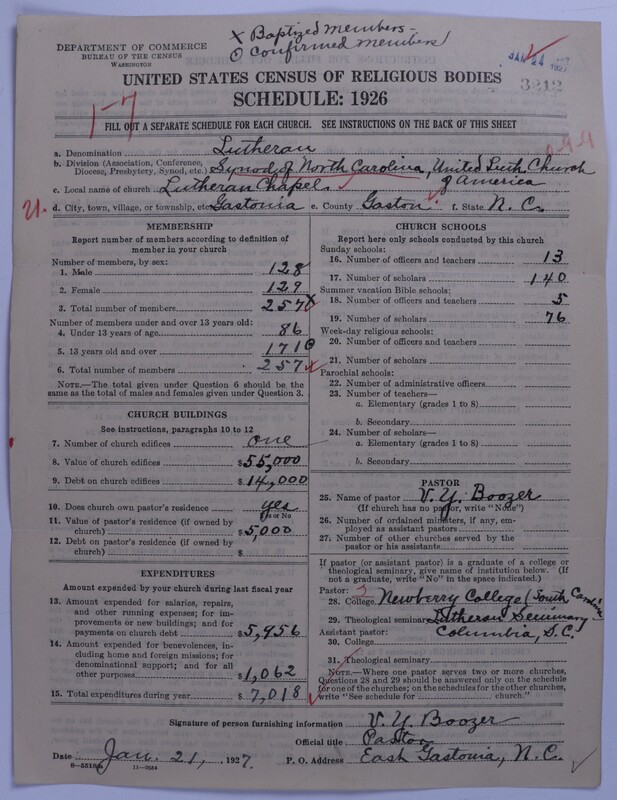 x Baptized members -
o Confirmed members
DEPARTMENT OF COMMERCE
BUREAU OF THE CENSUS
WASHINGTON
JAN 24 1927
3212
UNITED STATES CENSUS OF RELIGIOUS BODIES
SCHEDULE: 1926
1-7
FILL OUT A SEPARATE SCHEDULE FOR EACH CHURCH. SEE INSTRUCTIONS ON THE BACK OF THIS SHEET
a. Denomination Lutheran
b. Division (Association, Conference, Diocese, Presbytery, Synod, etc.) Synod of North Carolina, United Luth Church of America
c. Local name of church Lutheran Chapel
d. City, town, village, or township, etc. Gastonia e. County Gaston f. State N. C.
MEMBERSHIP
Report number of members according to definition of
member in your church
Number of members, by sex:
1. Male 128
2. Female 129
3. Total number of members 257 x
Number of members under and over 13 years old:
4. Under 13 years of age 86
5. 13 years old and over 171 o
6. Total number of members 257 x
NOTE.—The total given under Question 6 should be the
same as the total of males and females given under Question 3.
CHURCH BUILDINGS
See instructions, paragraphs 10 to 12
7. Number of church edifices one
8. Value of church edifices $ 55,000
9. Debt on church edifices $ 14,000
10. Does church own pastor's residence yes
Yes or No
11. Value of pastor's residence (if owned by
church) $ 5,000
12. Debt on pastor's residence (if owned by
church) $
EXPENDITURES
Amount expended by your church during last fiscal year
13. Amount expended for salaries, repairs,
and other running expenses; for im-
provements or new buildings; and for
payments on church debt $ 5,956
14. Amount expended for benevolences, in-
cluding home and foreign missions; for
denominational support; and for all
other purposes $ 1,062
15. Total expenditures during year $ 7,018
CHURCH SCHOOLS
Report here only schools conducted by this church
Sunday schools:
16. Number of officers and teachers 13
17. Number of scholars 140
Summer vacation Bible schools:
18. Number of officers and teachers 5
19. Number of scholars 76
Week-day religious schools:
20. Number of officers and teachers
21. Number of scholars
Parochial schools:
22. Number of administrative officers
23. Number of teachers—
a. Elementary (grades 1 to 8)
b. Secondary
24. Number of scholars—
a. Elementary (grades 1 to 8)
b. Secondary
PASTOR
25. Name of pastor V. Y. Boozer
(If church has no pastor, write "None")
26. Number of ordained ministers, if any, em-
ployed as assistant pastors
27. Number of other churches served by the
pastor or his assistants
If pastor (or assistant pastor) is a graduate of a college or
theological seminary, give name of institution below. (If
not a graduate, write "No" in the space indicated.)
Pastor:
28. College Newberry College (South Carolina
29. Theological seminary Lutheran Seminary
Assistant pastor: Columbia, S.C.
30. College
31. Theological seminary
NOTE.—Where one pastor serves two or more churches,
Questions 28 and 29 should be answered only on the schedule
for one of the churches; on the schedules for the other churches,
write "See schedule for church."
Signature of person furnishing information V. Y. Boozer
Official title Pastor
Date Jan. 21, 1927. P. O. Address East Gastonia, N. C.
8-5518a 11-9684